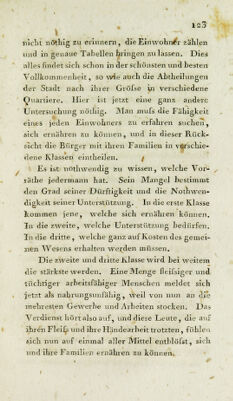 123
nicht nöthig zu erinnern, die Einwohner zählen
und in genaue Tabellen bringen zu lassen. Dies
alles findet sich schon in der schönsten und besten
Vollkommenheit, so wie auch die Abtheilungen
der Stadt nach ihrer Größe in verschiedene
Quartiere. Hier ist jetzt eine ganz andere
Untersuchung nöthig. Man muſs die Fähigkeit
eines jeden Einwohners zu erfahren suchen,
sich ernähren zu können, und in dieser Rück-
sicht die Bürger mit ihren Familien in verschie-
dene Klassen eintheilen.
Es ist nothwendig zu wissen, welche Vor-
räthe jedermann hat. Sein Mangel bestimmt
den Grad seiner Dürftigkeit und die Nothwen-
digkeit seiner Unterstützung. In die erste Klasse
kommen jene, welche sich ernähren können.
In die zweite, welche Unterstützung bedürfen.
In die dritte, welche ganz auf Kosten des gemei-
nen Wesens erhalten werden müssen.
Die zweite und dritte Klasse wird bei weitem
die stärkste werden. Eine Menge fleiſsiger und
tüchtiger arbeitsfähiger Menschen meldet sich
jetzt als nahrungsunfähig, weil von nun an die
mehresten Gewerbe und Arbeiten stocken. Das
Verdienst hört also auf, und diese Leute, die auf
ihren Fleiſs und ihre Händearbeit trotzten, fühlen
sich nun auf einmal aller Mittel entblöſst, sich
und ihre Familien ernähren zu können.